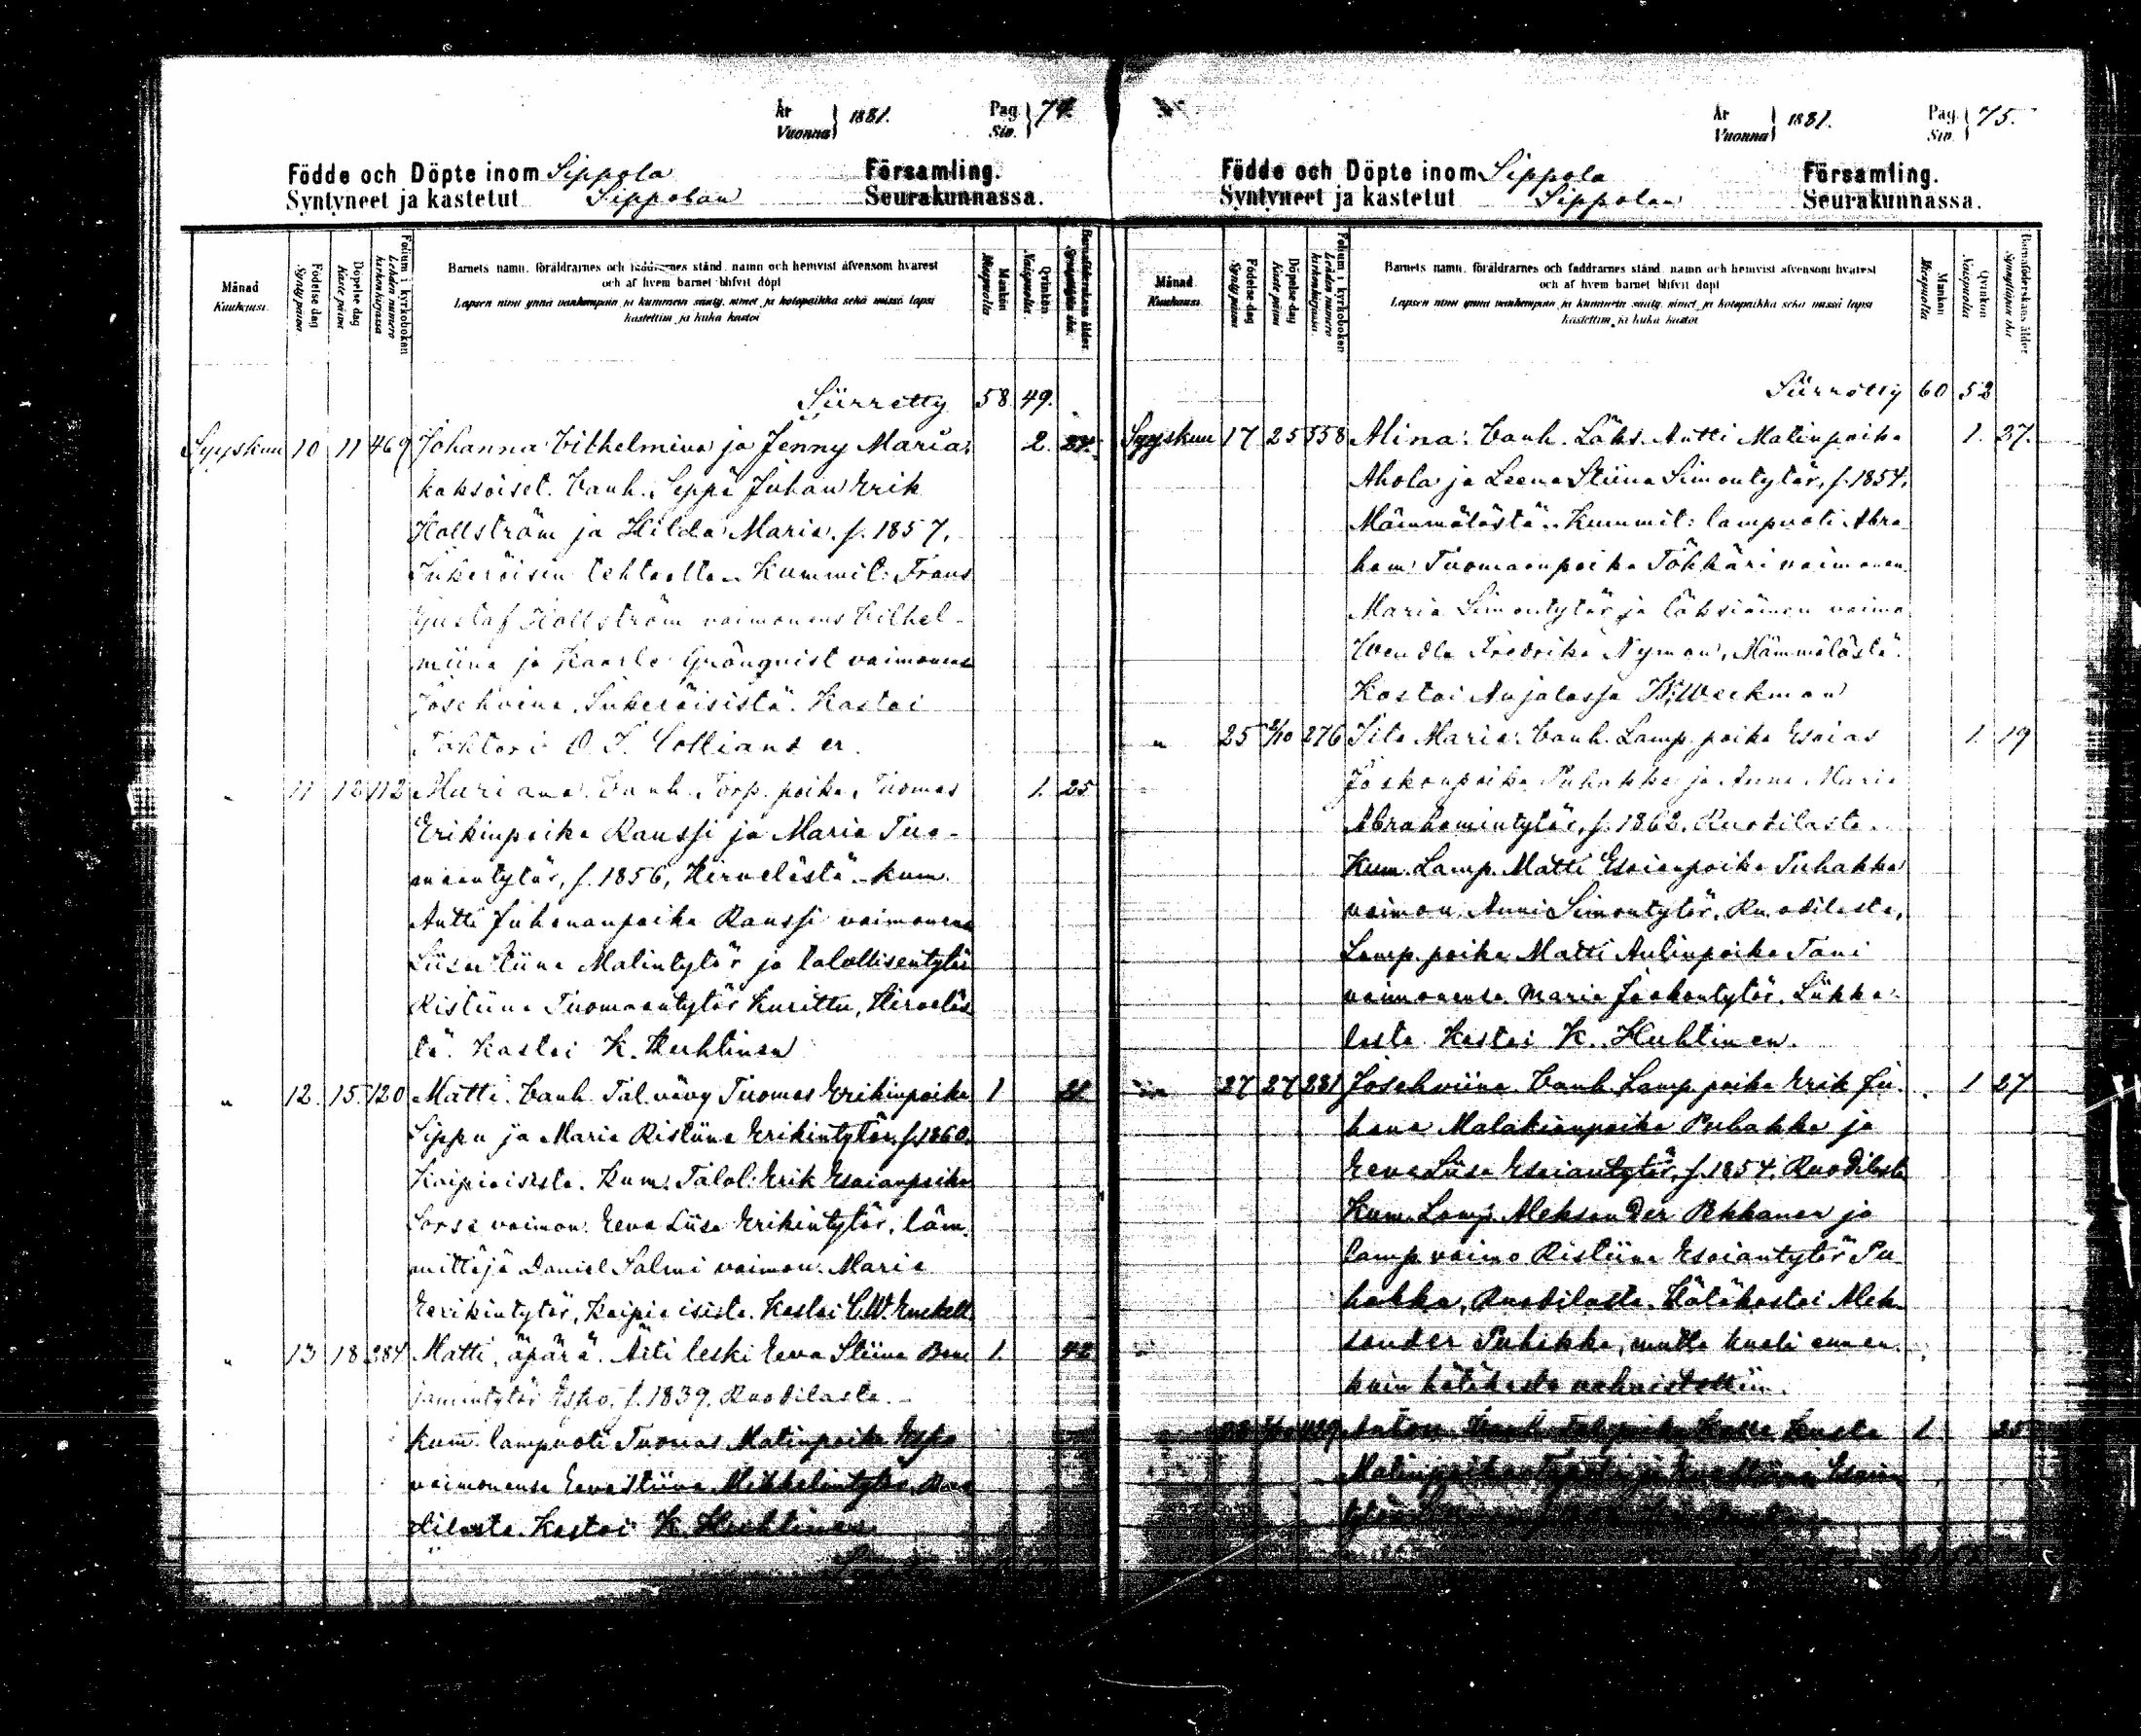 År
Vuonna } 1881.
Pag.
Siv. } 74.
Födde och Döpte inom Sippola Församling.
Syntyneet ja kastetut Sippolan Seurakunnassa.
Månad
Kuukausi.
Födelse dag
Synty päivä
Döpelse dag
Kaste päivä
Folium i kyrkoboken
Lehden numero kirkonkirjassa
Barnets namn, föräldrarnes och faddrarnes stånd, namn och hemvist äfvensom hvarest
och af hvem barnet blifvit döpt
Lapsen nimi ynnä vanhempain ja kummein sääty, nimet ja kotopaikka sekä missä lapsi
kastettiin ja kuka kastoi
Mankön
Miespuolia
Qvinkön
Naispuolia
Barnaföderskans ålder
Synnyttäjän ikä
Siirretty 58. 49.
Syyskuu 10 11 469 Johanna Vilhelmina ja Jenny Maria, 2. 24.
kaksoiset. Vanh. Seppä Juhan Erik
Hallström ja Hilda Maria, s. 1857,
Inkeröisin tehtaalta. Kummit: Frans
Gustaf Hallström vaimonens Vilhel-
miina ja Kaarlo Grönqvist vaimonens
Josehvina, Inkeröisistä. Kastoi
Tohtori O. I. Colliander.
" 11 12 112 Mariana. Vanh. Torp. poika Tuomas 1. 25
Erikinpoika Raussi ja Maria Tuo-
maantytär, s. 1856, Hirvelästä. Kum.
Antti Juhananpoika Raussi vaimonens
Liisa Stiina Matintytär ja talollisentytär
Ristiina Tuomaantytär Kurittu, Hirveläs
tä. Kastoi K. Huhtinen
" 12. 15. 120 Matti. Vanh. Tal. vävy Tuomas Erikinpoika 1 21.
Sippu ja Maria Ristiina Erikintytär, s. 1860.
Kaipiaisista. Kum. Talol. Erik Esaianpoika
Sorsa vaimon. Eeva Liisa Erikintytär, läm-
mittäjä Daniel Salmi vaimon. Maria
Eerikintytär, Kaipiaisista. Kastoi C.W. Enckell.
" 13 18 384 Matti, äpärä. Äiti leski Eeva Stiina Ben 1. 42
jamintytär Espo, s. 1839, Ruotilasta.
Kum. lampuoti Tuomas Matinpoika Espo
vaimonensa Eeva Stiina Mikkelintytär, Ruo
tilasta. Kastoi K. Huhtinen.
År
Vuonna } 1881.
Pag.
Siv. } 75.
Födde och Döpte inom Sippola Församling.
Syntyneet ja kastetut Sippolan Seurakunnassa.
Månad
Kuukausi.
Födelse dag
Synty päivä
Döpelse dag
Kaste päivä
Folium i kyrkoboken
Lehden numero kirkonkirjassa.
Barnets namn, föräldrarnes och faddrarnes stånd, namn och hemvist äfvensom hvarest
och af hvem barnet blifvit döpt
Lapsen nimi ynnä vanhempain ja kummein sääty, nimet ja kotopaikka sekä missä lapsi
kastettiin ja kuka kastoi
Mankön
Miespuolia
Qvinkön
Naispuolia
Barnaföderskans ålder
Synnyttäjän ikä
Siirretty 60 52
Syyskuu 17 25 558 Alina. Vanh. Läks. Antti Matinpoika 1. 27.
Ahola ja Leena Stiina Simontytär, s. 1854,
Mämmälästä. Kummit: lampuoti Abra
ham Tuomaanpoika Töhkäri vaimonen
Maria Simontytär ja läksiäinen vaimo
Wendla Fredrika Nyman, Mämmälästä.
Kastoi Anjalassa K. Weckman
" 25 2/10 276 Iita Maria. Vanh. Lamp. poika Esaias 1. 19
Jaakonpoika Puhakka ja Anna Maria
Abrahamintytär, s. 1862, Ruotilasta.
Kum. Lamp. Matti Esaianpoika Puhakka
vaimon. Anni Simontytär, Ruotilasta,
Lamp. poika Matti Antinpoika Tani
vaimonensa Maria Jaakontytär, Liikka-
lasta. Kastoi K. Huhtinen.
" 27 27 281 Josehviina. Vanh. Lamp. poika Erik Ju- 1 27
hana Malakianpoika Puhakka ja
Eeva Liisa Esaiantytär, s. 1854, Ruotilasta
Kum. Lamp. Aleksander Pekkanen ja
lamp. vaimo Ristiina Esaiantytär Pu
hakka, Ruotilasta. Hätäkastoi Alek-
sander Puhakka, mutta kuoli ennen
kuin hätäkaste vahvistettiin.
Anton. Vanh. Tal. poika Kalle Kusta 1 25
Matinpoika